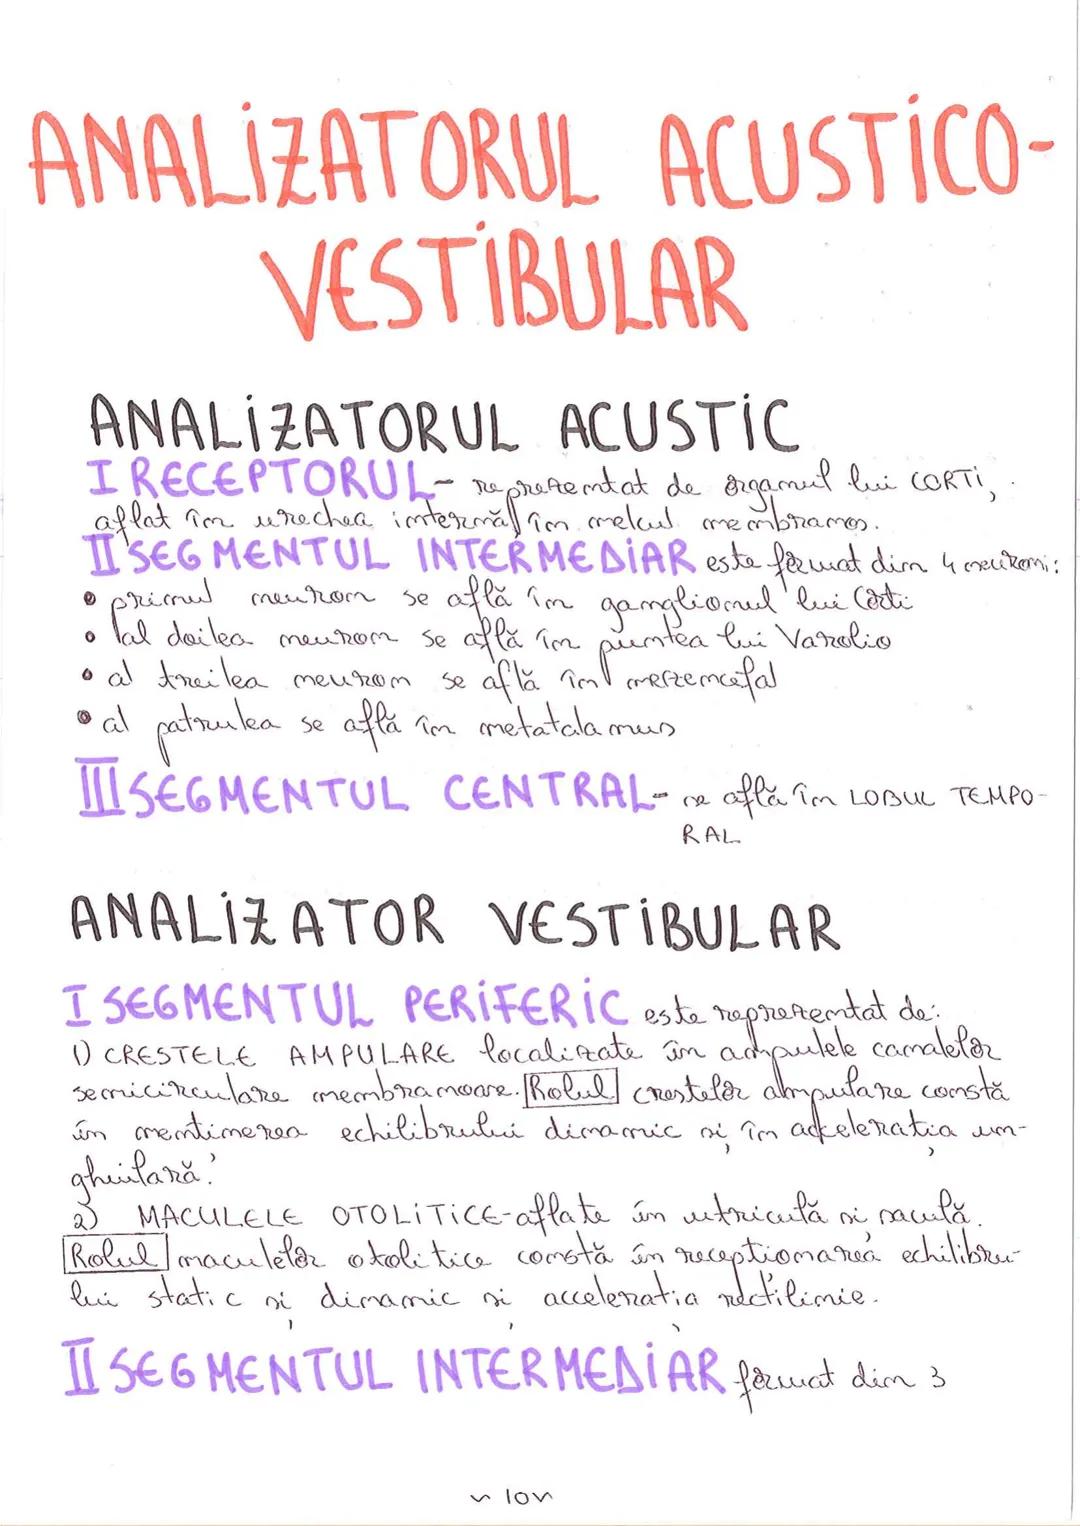 ANALIZATORUL ACUSTICO-
VESTIBULAR
ANALIZATORUL ACUSTIC
I RECEPTORUL- reprezentat de organul lui CORTI,
aflat în urechea internă, în melcul membranos.
II SEGMENTUL INTERMEDIAR este format din 4 neuroni:
• primul neuron se află în ganglionul lui Corti
• al doilea neuron se află în puntea lui Varolio
• al treilea neuron se află în mezencefal
• al patrulea se află în metatalamus
III SEGMENTUL CENTRAL- se află în LOBUL TEMPO-
RAL
ANALIZATOR VESTIBULAR
I SEGMENTUL PERIFERIC este reprezentat de:
1) CRESTELE AMPULARE localizate în ampulele canalelor
semicirculare membranoase. Rolul crestelor ampulare constă
în mentinerea echilibrului dinamic și în accelerația un-
ghiulară.
2) MACULELE OTOLITICE-aflate în utriculă si saculă.
Rolul maculelor otolitice constă în receptionarea echilibru-
lui static și dinamic și accelerația rectilinie.
II SEGMENTUL INTERMEDIAR format din 3
~ 10~